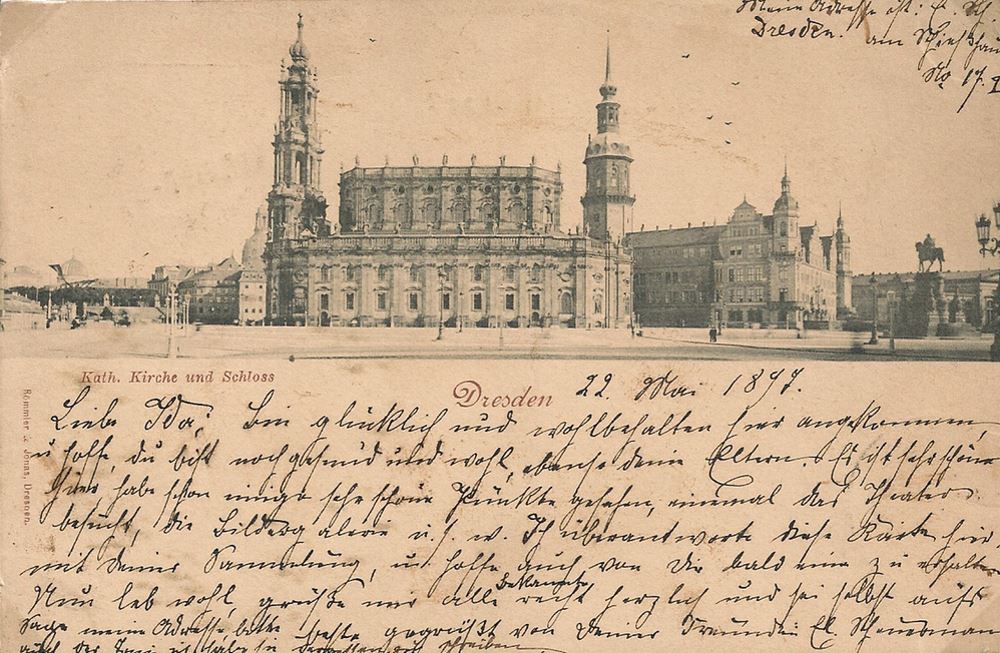 Meine Adresse ist: E. Sch
Dresden. am Schießhau
No 17. I
Kath. Kirche und Schloss
Dresden 22. Mai 1897.
Römmler & Jonas, Dresden.
Liebe Ida; bin glücklich und wohlbehalten hier angekommen,
u hoffe, du bist noch gesund und wohl, ebenso deine Eltern. Es ist sehr schön
hier, habe schon einige sehr schöne Pünkte gesehen, einmal das Theater
besucht, die Bildergalerie u. s. w. Ich überantworte diese Karte hier
mit deiner Sammlung, u. hoffe auch von Dir bald eine zu erhalten
Nun leb wohl, grüße mir alle Bekannte recht herzlich und sei selbst aufs
beste gegrüßt von deiner Freundin El. Scheuermann
Sage meine Adresse bitte
schreiben